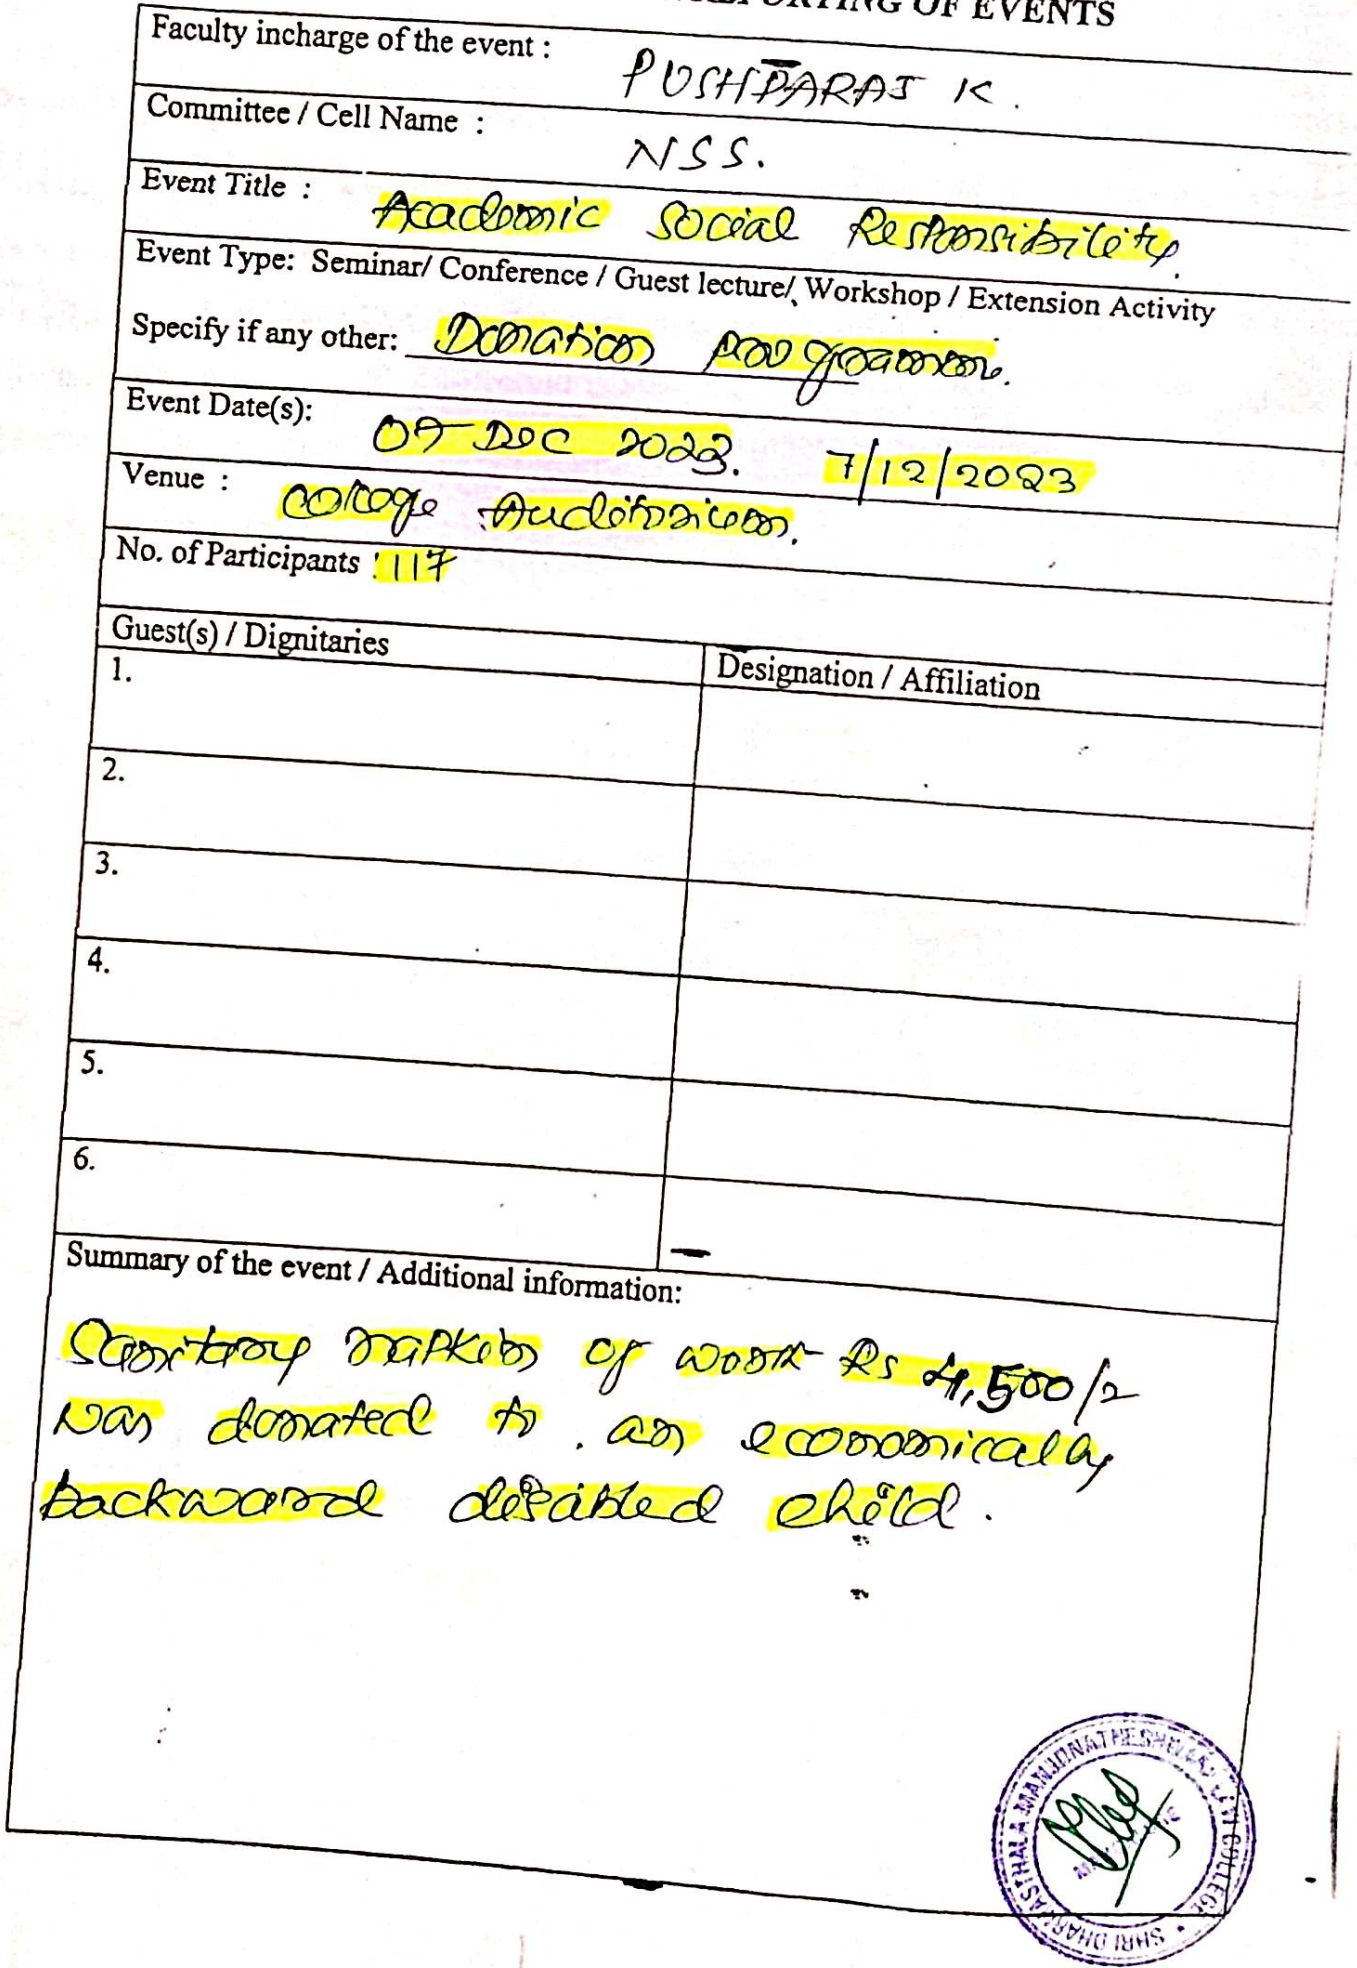 REPORTING OF EVENTS
Faculty incharge of the event : PUSHPARAJ K.
Committee / Cell Name : NSS.
Event Title : Academic Social Responsibility.
Event Type: Seminar/ Conference / Guest lecture/ Workshop / Extension Activity
Specify if any other: Donation programme.
Event Date(s): 07 DEC 2023. 7/12/2023
Venue : College Auditorium.
No. of Participants : 117
Guest(s) / Dignitaries Designation / Affiliation
1.
2.
3.
4.
5.
6.
Summary of the event / Additional information:
Sanitary napkins of worth Rs 4,500/-
was donated to an economically
backward disabled child.
SHRI DHARMASTHALA MANJUNATHESHWARA LAW COLLEGE